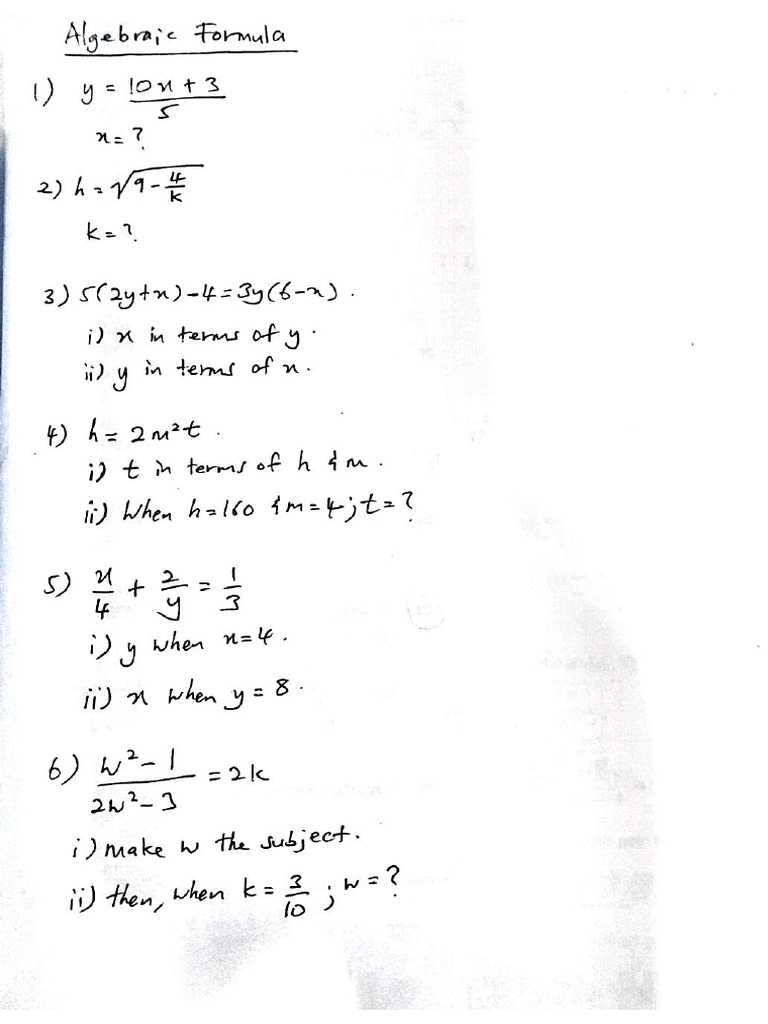 Algebraic Formula
1) y = (10x + 3)/5
x = ?
2) h = √(9 - 4/k)
k = ?
3) 5(2y+x) - 4 = 3y(6-x).
i) x in terms of y.
ii) y in terms of x.
4) h = 2m²t.
i) t in terms of h & m.
ii) When h = 160 & m = 4; t = ?
5) x/4 + 2/y = 1/3
i) y when x = 4.
ii) x when y = 8.
6) (w² - 1)/(2w² - 3) = 2k
i) make w the subject.
ii) then, when k = 3/10; w = ?